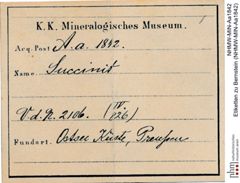 K. K. Mineralogisches Museum.
Acq. Post A. a. 1842.
Name. Succinit
V. d. N. 2106. (IV/826)
Fundort. Ostsee Küste, Preussen
NHMW-MIN-Aa1842
Etiketten zu Bernstein (NHMW-MIN-Aa1842)
nhm